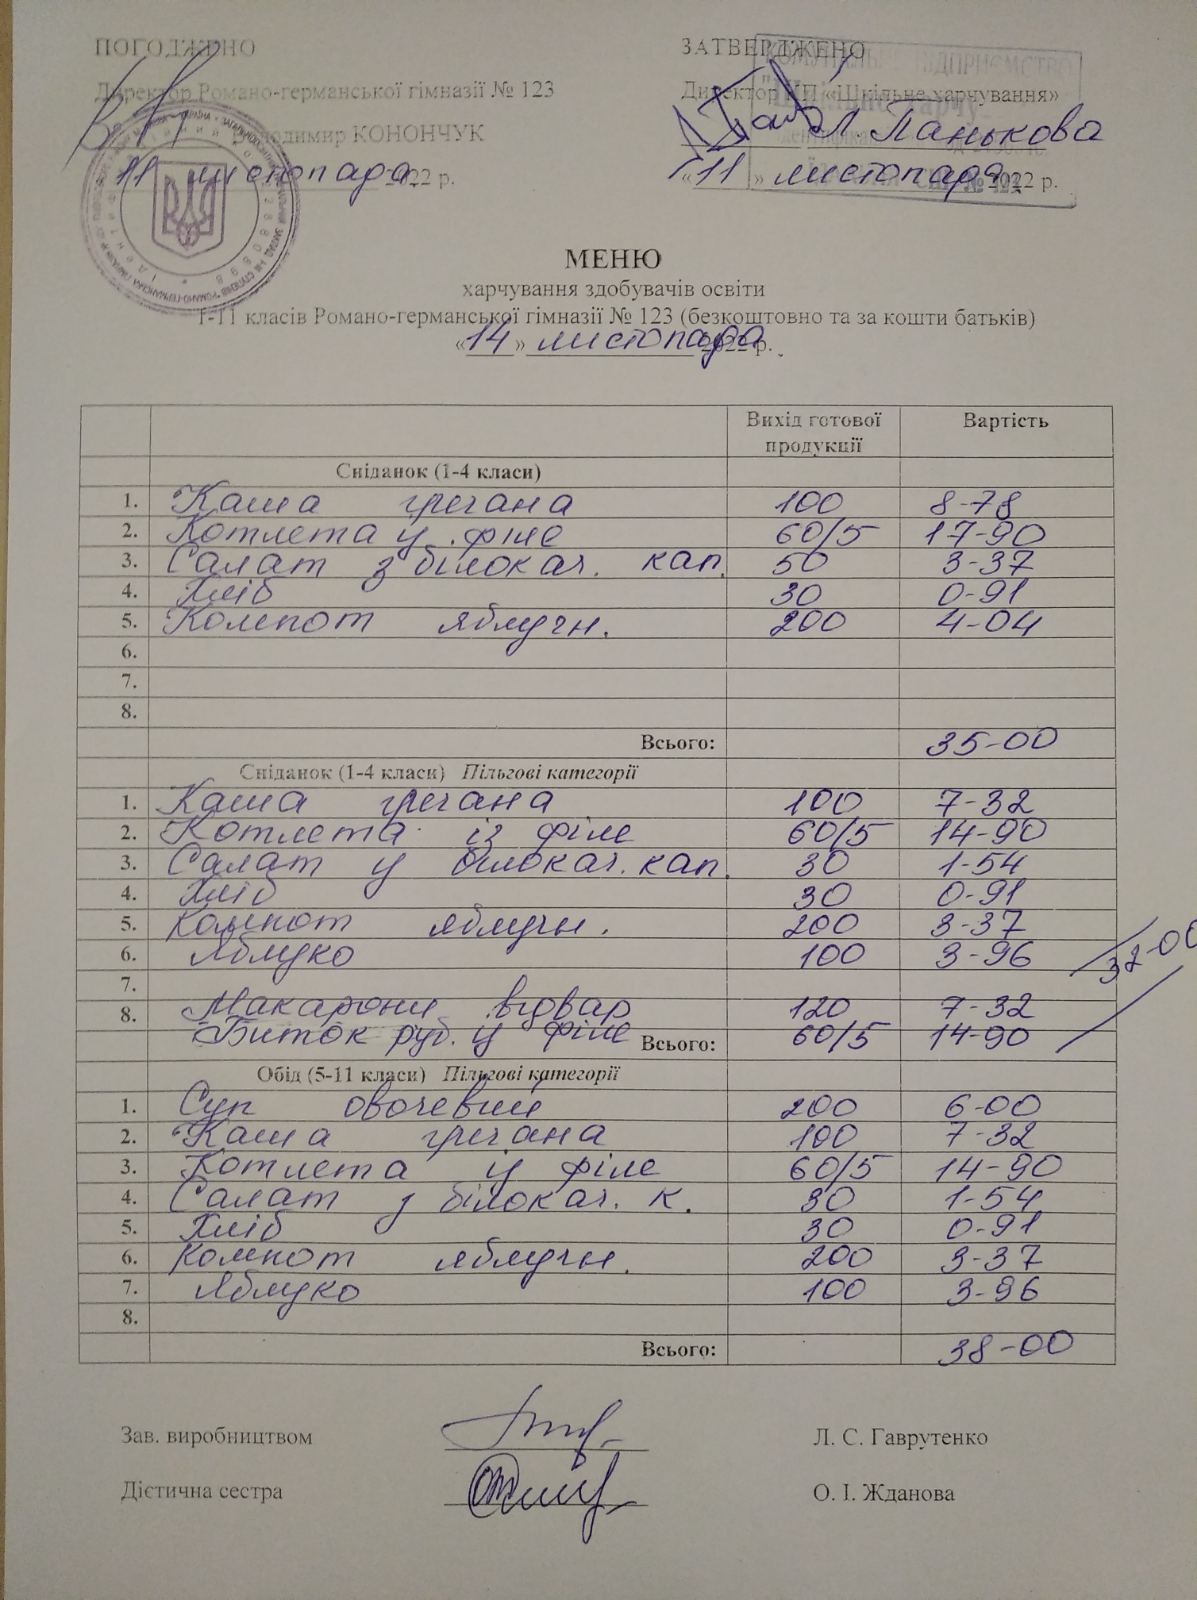 ПОГОДЖЕНО
Директор Романо-германської гімназії № 123
Володимир КОНОНЧУК
11 листопада 2022 р.
ЗАТВЕРДЖЕНО
Директор КП «Шкільне харчування»
Л Панькова
«11» листопада 2022 р.
МЕНЮ
харчування здобувачів освіти
1-11 класів Романо-германської гімназії № 123 (безкоштовно та за кошти батьків)
«14» листопада 2022 р.
Вихід готової продукції Вартість
Сніданок (1-4 класи)
1. Каша гречана 100 8-78
2. Котлета у філе 60/5 17-90
3. Салат з білокач. кап. 50 3-37
4. Хліб 30 0-91
5. Компот яблучн. 200 4-04
6.
7.
8.
Всього: 35-00
Сніданок (1-4 класи) Пільгові категорії
1. Каша гречана 100 7-32
2. Котлета із філе 60/5 14-90
3. Салат у білокач. кап. 30 1-54
4. Хліб 30 0-91
5. Компот яблучн. 200 3-37
6. Яблуко 100 3-96
32-00
7.
8. Макарони відвар 120 7-32
Биток руб. у філе Всього: 60/5 14-90
Обід (5-11 класи) Пільгові категорії
1. Суп овочевий 200 6-00
2. Каша гречана 100 7-32
3. Котлета у філе 60/5 14-90
4. Салат з білокач. к. 30 1-54
5. Хліб 30 0-91
6. Компот яблучн. 200 3-37
7. Яблуко 100 3-96
8.
Всього: 38-00
Зав. виробництвом Л. С. Гаврутенко
Дієтична сестра О. І. Жданова